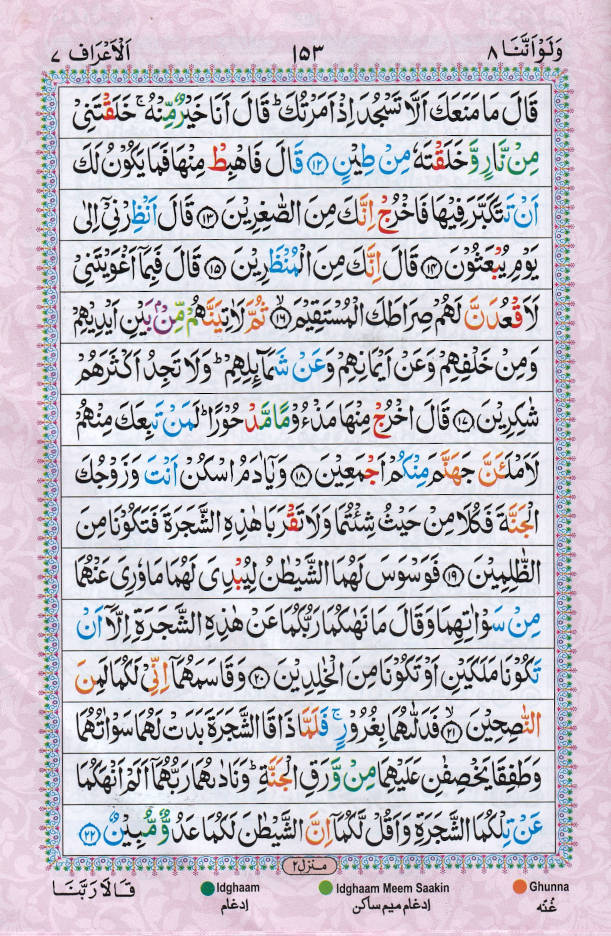 وَلَوْ اَنَّنَا ٨
١٥٣
اَلْاَعْرَاف ٧
قَالَ مَا مَنَعَكَ اَلَّا تَسْجُدَ اِذْ اَمَرْتُكَ ؕ قَالَ اَنَا خَيْرٌ مِّنْهُ ۚ خَلَقْتَنِىْ
مِنْ نَّارٍ وَّخَلَقْتَهٗ مِنْ طِيْنٍ ۝١٢ قَالَ فَاهْبِطْ مِنْهَا فَمَا يَكُوْنُ لَكَ
اَنْ تَتَكَبَّرَ فِيْهَا فَاخْرُجْ اِنَّكَ مِنَ الصّٰغِرِيْنَ ۝١٣ قَالَ اَنْظِرْنِىْۤ اِلٰى
يَوْمِ يُبْعَثُوْنَ ۝١٤ قَالَ اِنَّكَ مِنَ الْمُنْظَرِيْنَ ۝١٥ قَالَ فَبِمَاۤ اَغْوَيْتَنِىْ
لَاَقْعُدَنَّ لَهُمْ صِرَاطَكَ الْمُسْتَقِيْمَ ۝١٦ ثُمَّ لَاٰتِيَنَّهُمْ مِّنْۢ بَيْنِ اَيْدِيْهِمْ
وَمِنْ خَلْفِهِمْ وَعَنْ اَيْمَانِهِمْ وَعَنْ شَمَآئِلِهِمْ ؕ وَلَا تَجِدُ اَكْثَرَهُمْ
شٰكِرِيْنَ ۝١٧ قَالَ اخْرُجْ مِنْهَا مَذْءُوْمًا مَّدْحُوْرًا ؕ لَمَنْ تَبِعَكَ مِنْهُمْ
لَاَمْلَـَٔنَّ جَهَنَّمَ مِنْكُمْ اَجْمَعِيْنَ ۝١٨ وَيٰۤاٰدَمُ اسْكُنْ اَنْتَ وَزَوْجُكَ
الْجَنَّةَ فَكُلَا مِنْ حَيْثُ شِئْتُمَا وَلَا تَقْرَبَا هٰذِهِ الشَّجَرَةَ فَتَكُوْنَا مِنَ
الظّٰلِمِيْنَ ۝١٩ فَوَسْوَسَ لَهُمَا الشَّيْطٰنُ لِيُبْدِىَ لَهُمَا مَا وٗرِىَ عَنْهُمَا
مِنْ سَوْاٰتِهِمَا وَقَالَ مَا نَهٰىكُمَا رَبُّكُمَا عَنْ هٰذِهِ الشَّجَرَةِ اِلَّاۤ اَنْ
تَكُوْنَا مَلَكَيْنِ اَوْ تَكُوْنَا مِنَ الْخٰلِدِيْنَ ۝٢٠ وَقَاسَمَهُمَاۤ اِنِّىْ لَكُمَا لَمِنَ
النّٰصِحِيْنَ ۝٢١ فَدَلّٰىهُمَا بِغُرُوْرٍ ۚ فَلَمَّا ذَاقَا الشَّجَرَةَ بَدَتْ لَهُمَا سَوْاٰتُهُمَا
وَطَفِقَا يَخْصِفٰنِ عَلَيْهِمَا مِنْ وَّرَقِ الْجَنَّةِ ؕ وَنَادٰىهُمَا رَبُّهُمَاۤ اَلَمْ اَنْهَكُمَا
عَنْ تِلْكُمَا الشَّجَرَةِ وَاَقُلْ لَّكُمَاۤ اِنَّ الشَّيْطٰنَ لَكُمَا عَدُوٌّ مُّبِيْنٌ ۝٢٢
منزل ٢
قَالَا رَبَّنَا
Idghaam
ادغام
Idghaam Meem Saakin
ادغام میم ساکن
Ghunna
غُنّه